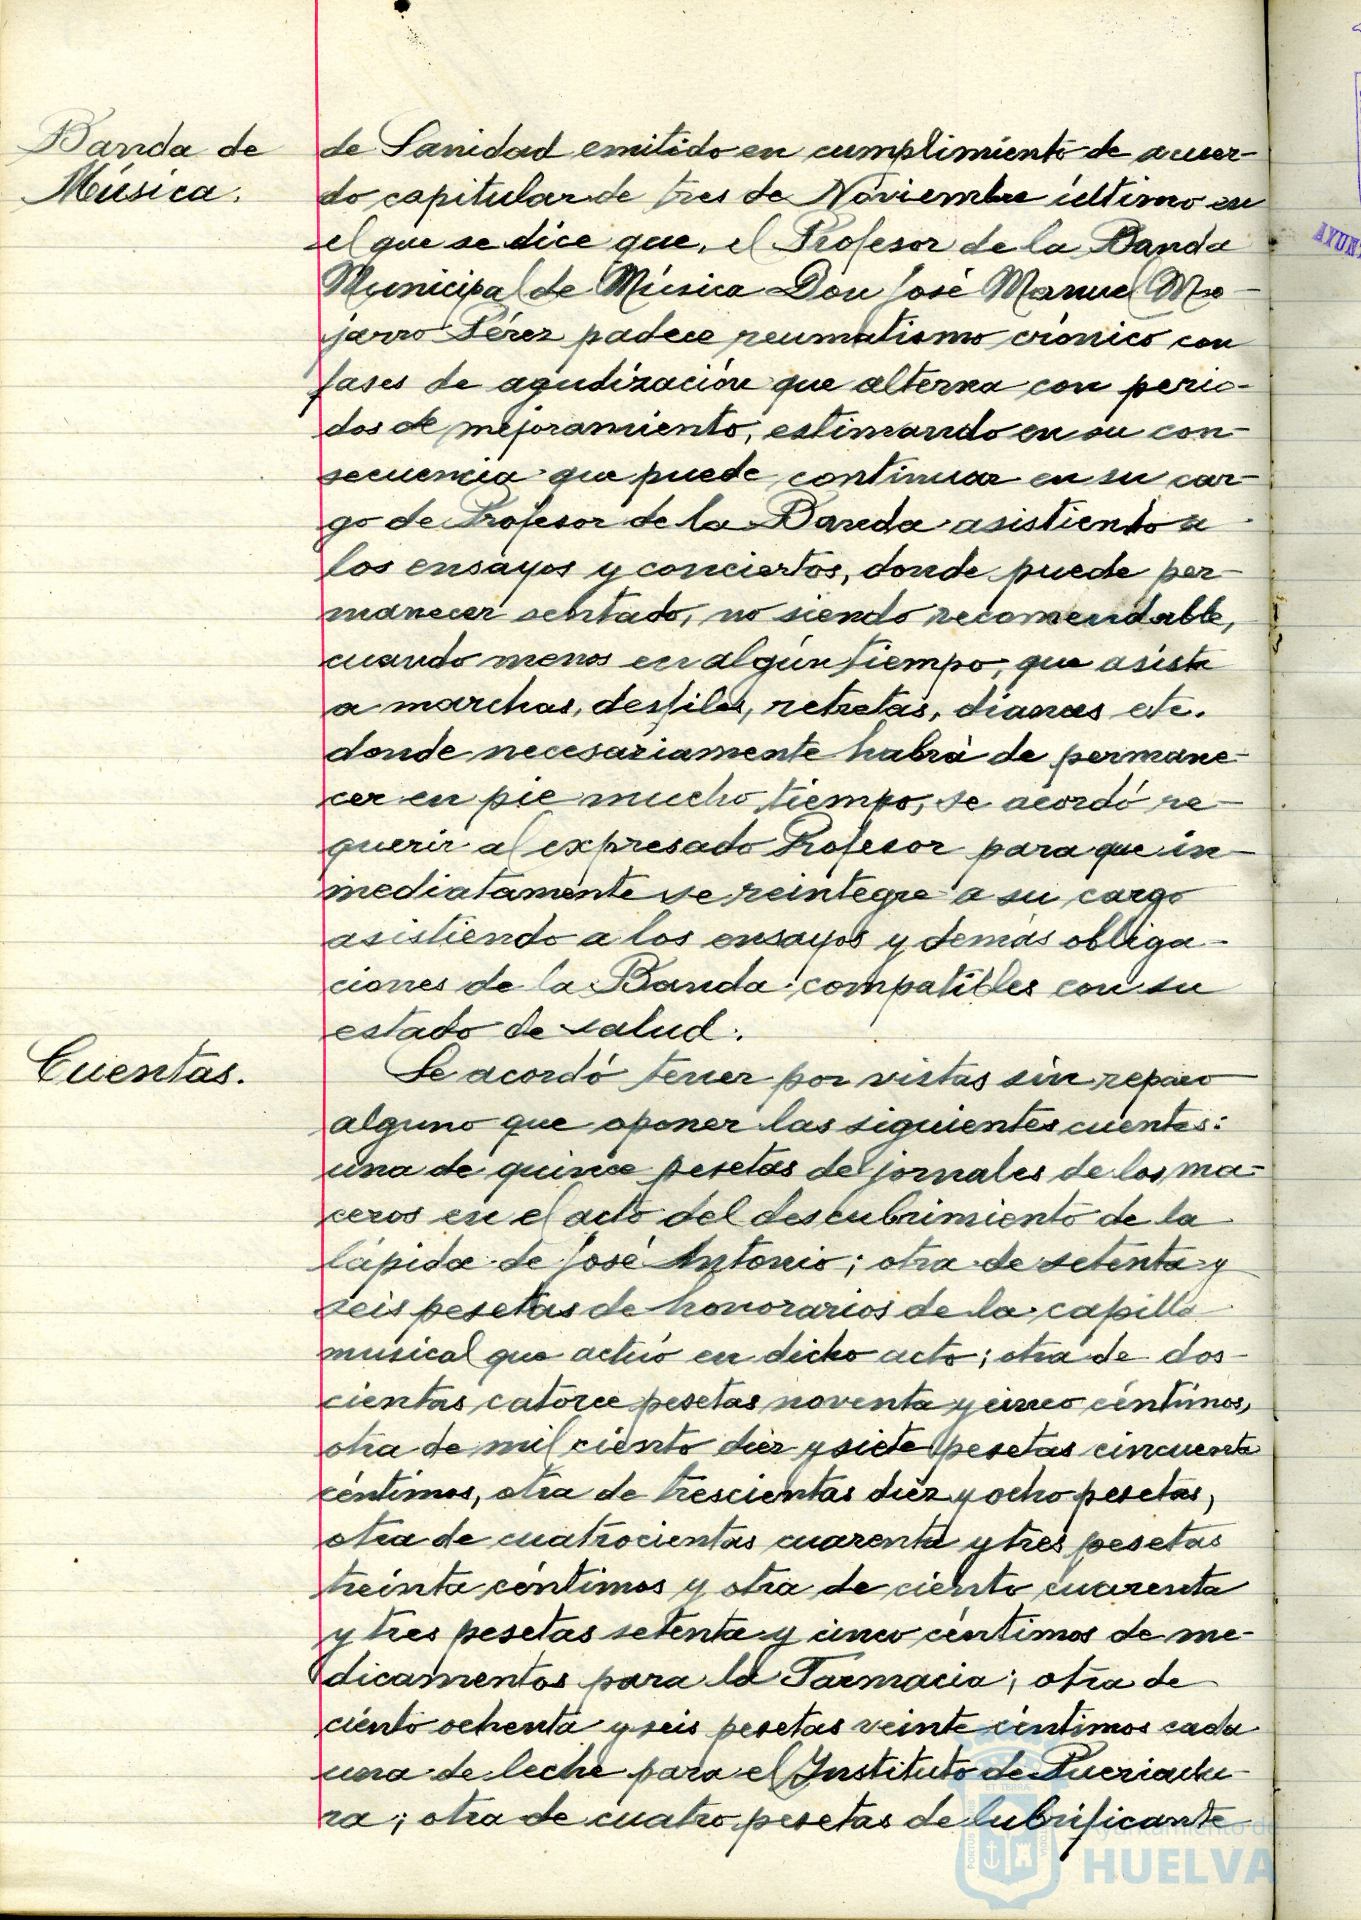 Banda de
Música.
de Sanidad emitido en cumplimiento de acuer-
do capitular de tres de Noviembre último en
el que se dice que, el Profesor de la Banda
Municipal de Música Don José Manuel Mo-
jarro Pérez padece reumatismo crónico con
fases de agudización que alterna con perio-
dos de mejoramiento, estimando en su con-
secuencia que puede continuar en su car-
go de Profesor de la Banda asistiendo a
los ensayos y conciertos, donde puede per-
manecer sentado, no siendo recomendable,
cuando menos en algún tiempo, que asista
a marchas, desfiles, retretas, dianas etc.
donde necesariamente habrá de permane-
cer en pie mucho tiempo, se acordó re-
querir al expresado Profesor para que in-
mediatamente se reintegre a su cargo
asistiendo a los ensayos y demás obliga-
ciones de la Banda compatibles con su
estado de salud.
Cuentas.
Se acordó tener por vistas sin reparo
alguno que oponer las siguientes cuentas:
una de quince pesetas de jornales de los ma-
ceros en el acto del descubrimiento de la
lápida de José Antonio; otra de setenta y
seis pesetas de honorarios de la capilla
musical que actuó en dicho acto; otra de dos-
cientas catorce pesetas noventa y cinco céntimos,
otra de mil ciento diez y siete pesetas cincuenta
céntimos, otra de trescientas diez y ocho pesetas,
otra de cuatrocientas cuarenta y tres pesetas
treinta céntimos y otra de ciento cuarenta
y tres pesetas setenta y cinco céntimos de me-
dicamentos para la Farmacia; otra de
ciento ochenta y seis pesetas veinte céntimos cada
una de leche para el Instituto de Puericultu-
ra; otra de cuatro pesetas de lubrificante
Ayuntamiento de
HUELVA